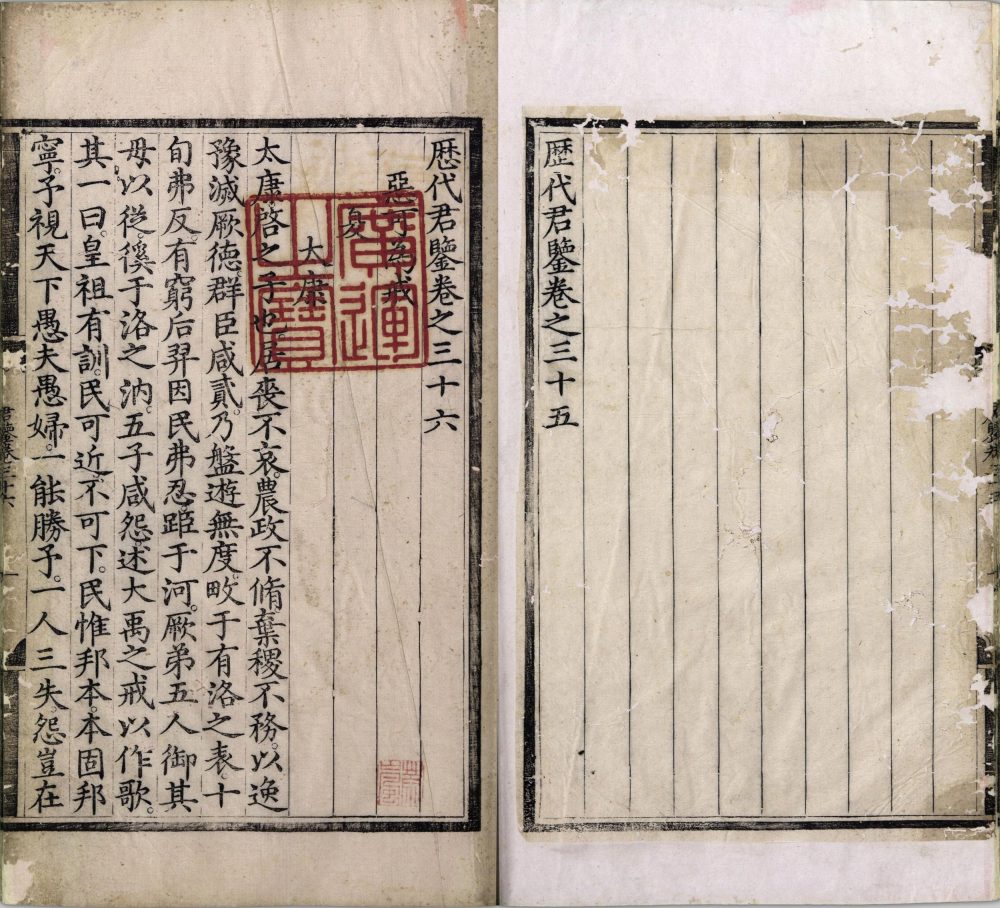 歷代君鑒卷之三十五
歷代君鑒卷之三十六
惡可為戒
夏
太康
太康啓之子也。居喪不哀。農政不脩棄稷不務。以逸
豫滅厥德。群臣咸貳。乃盤遊無度。畋于有洛之表。十
旬弗反。有窮后羿因民弗忍。距于河。厥弟五人御其
母以從。徯于洛之汭。五子咸怨。述大禹之戒以作歌。
其一曰。皇祖有訓。民可近。不可下。民惟邦本。本固邦
寧。予視天下愚夫愚婦。一能勝予。一人三失。怨豈在
廣運之寶